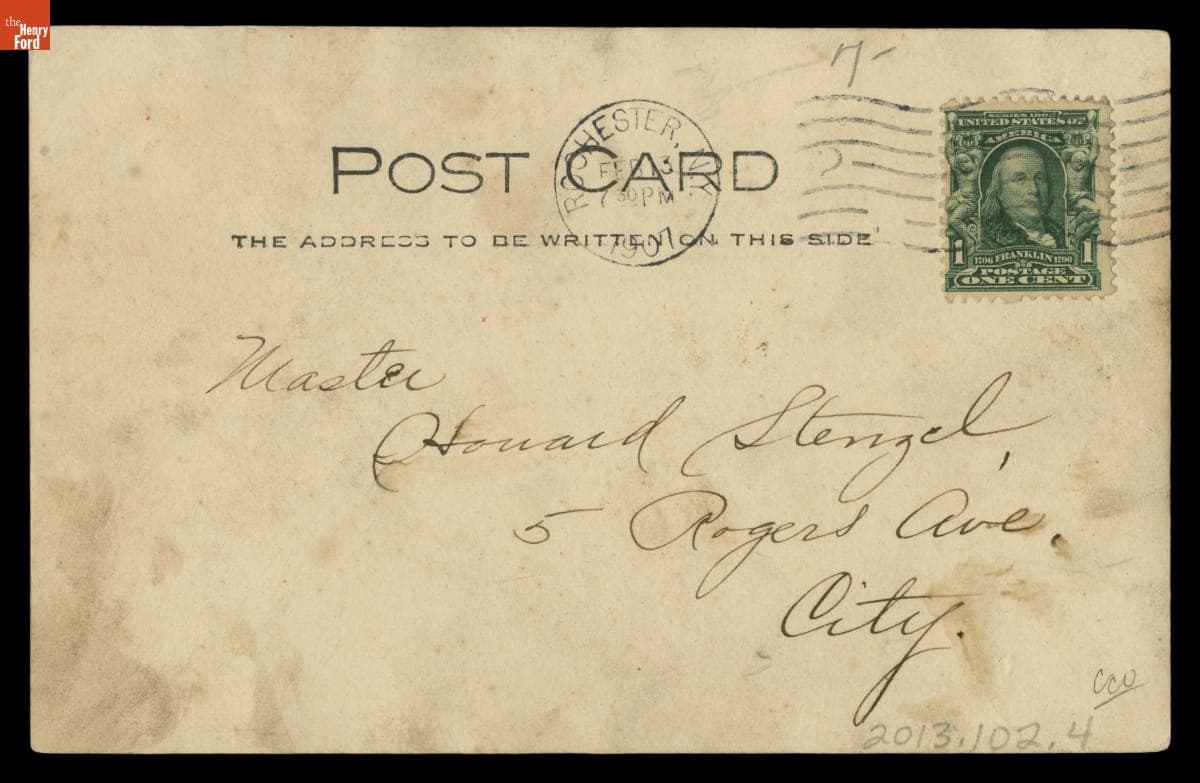 the
Henry
Ford
7-
ROCHESTER, N.Y.
FEB 13
7 30 PM
1907
SERIES 1902
UNITED STATES OF
AMERICA
1 1706 FRANKLIN 1790 1
POSTAGE
ONE CENT
POST CARD
THE ADDRESS TO BE WRITTEN ON THIS SIDE
Master
Howard Stengel,
5 Rogers Ave.
City.
2013.102.4